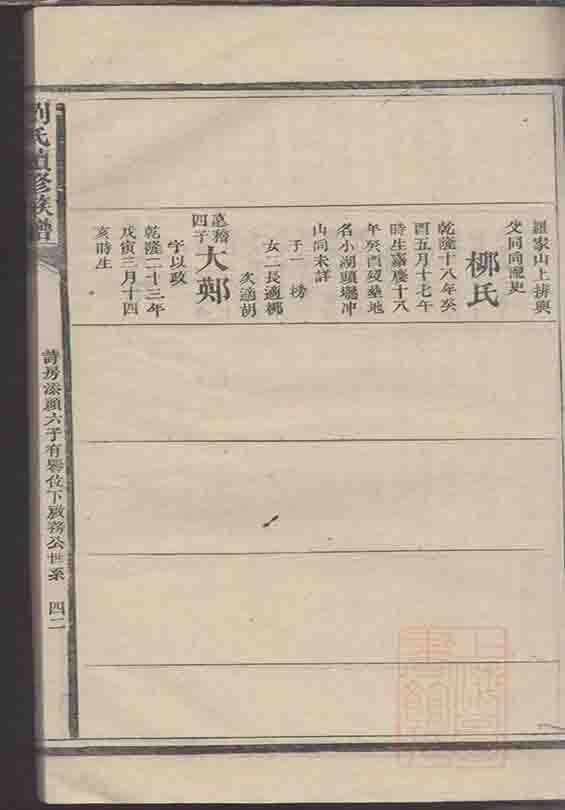 羅家山上排與
父同向配吏
柳氏
乾隆十八年癸
酉五月十七午
時生嘉慶十八
年癸酉歿葬地
名小湖頭壠冲
山向未詳
子一 榜
女二長適柳
次適胡
慕稽
四子
大鄭
字以政
乾隆二十三年
戊寅三月十四
亥時生
劉氏 修族譜
詩房添頭六子有 位下敏務公世系 四二
上海
圖書館